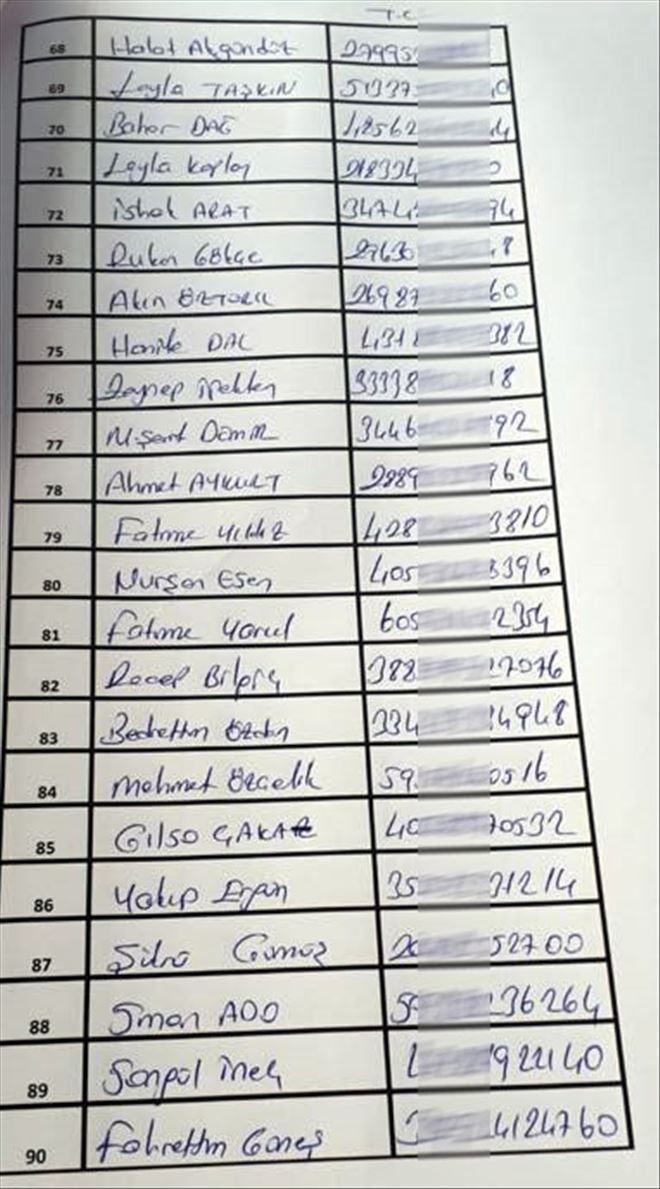 T.C
68 Halat Akgündüz 27995
69 Leyla TAŞKIN 51337 0
70 Bahar DAĞ 48562 4
71 Leyla Kaplan 218334
72 ishak ARAT 34742 94
73 Rukan Gökçe 27630 8
74 Akın ÖZTÜRK 26987 60
75 Hanife DAL 431 382
76 Zeynep ipekten 33338 18
77 N.Şent DEMİR 3446 92
78 Ahmet AYKURT 2889 762
79 Fatma yıldız 428 3810
80 Nurşen Esen 405 3396
81 Fatma 605 2354
82 Recep Bilgiç 388 17076
83 Bedrettin Özdın 334 14948
84 Mehmet Özçelik 59 0516
85 Gilso ÇAKAR 40 70532
86 Yakup Ergan 35 31214
87 Şilva Gümüş 26 52700
88 Sinan ADO 59 36264
89 Şanpol inek 922140
90 Fahrettin Güneş 4124760